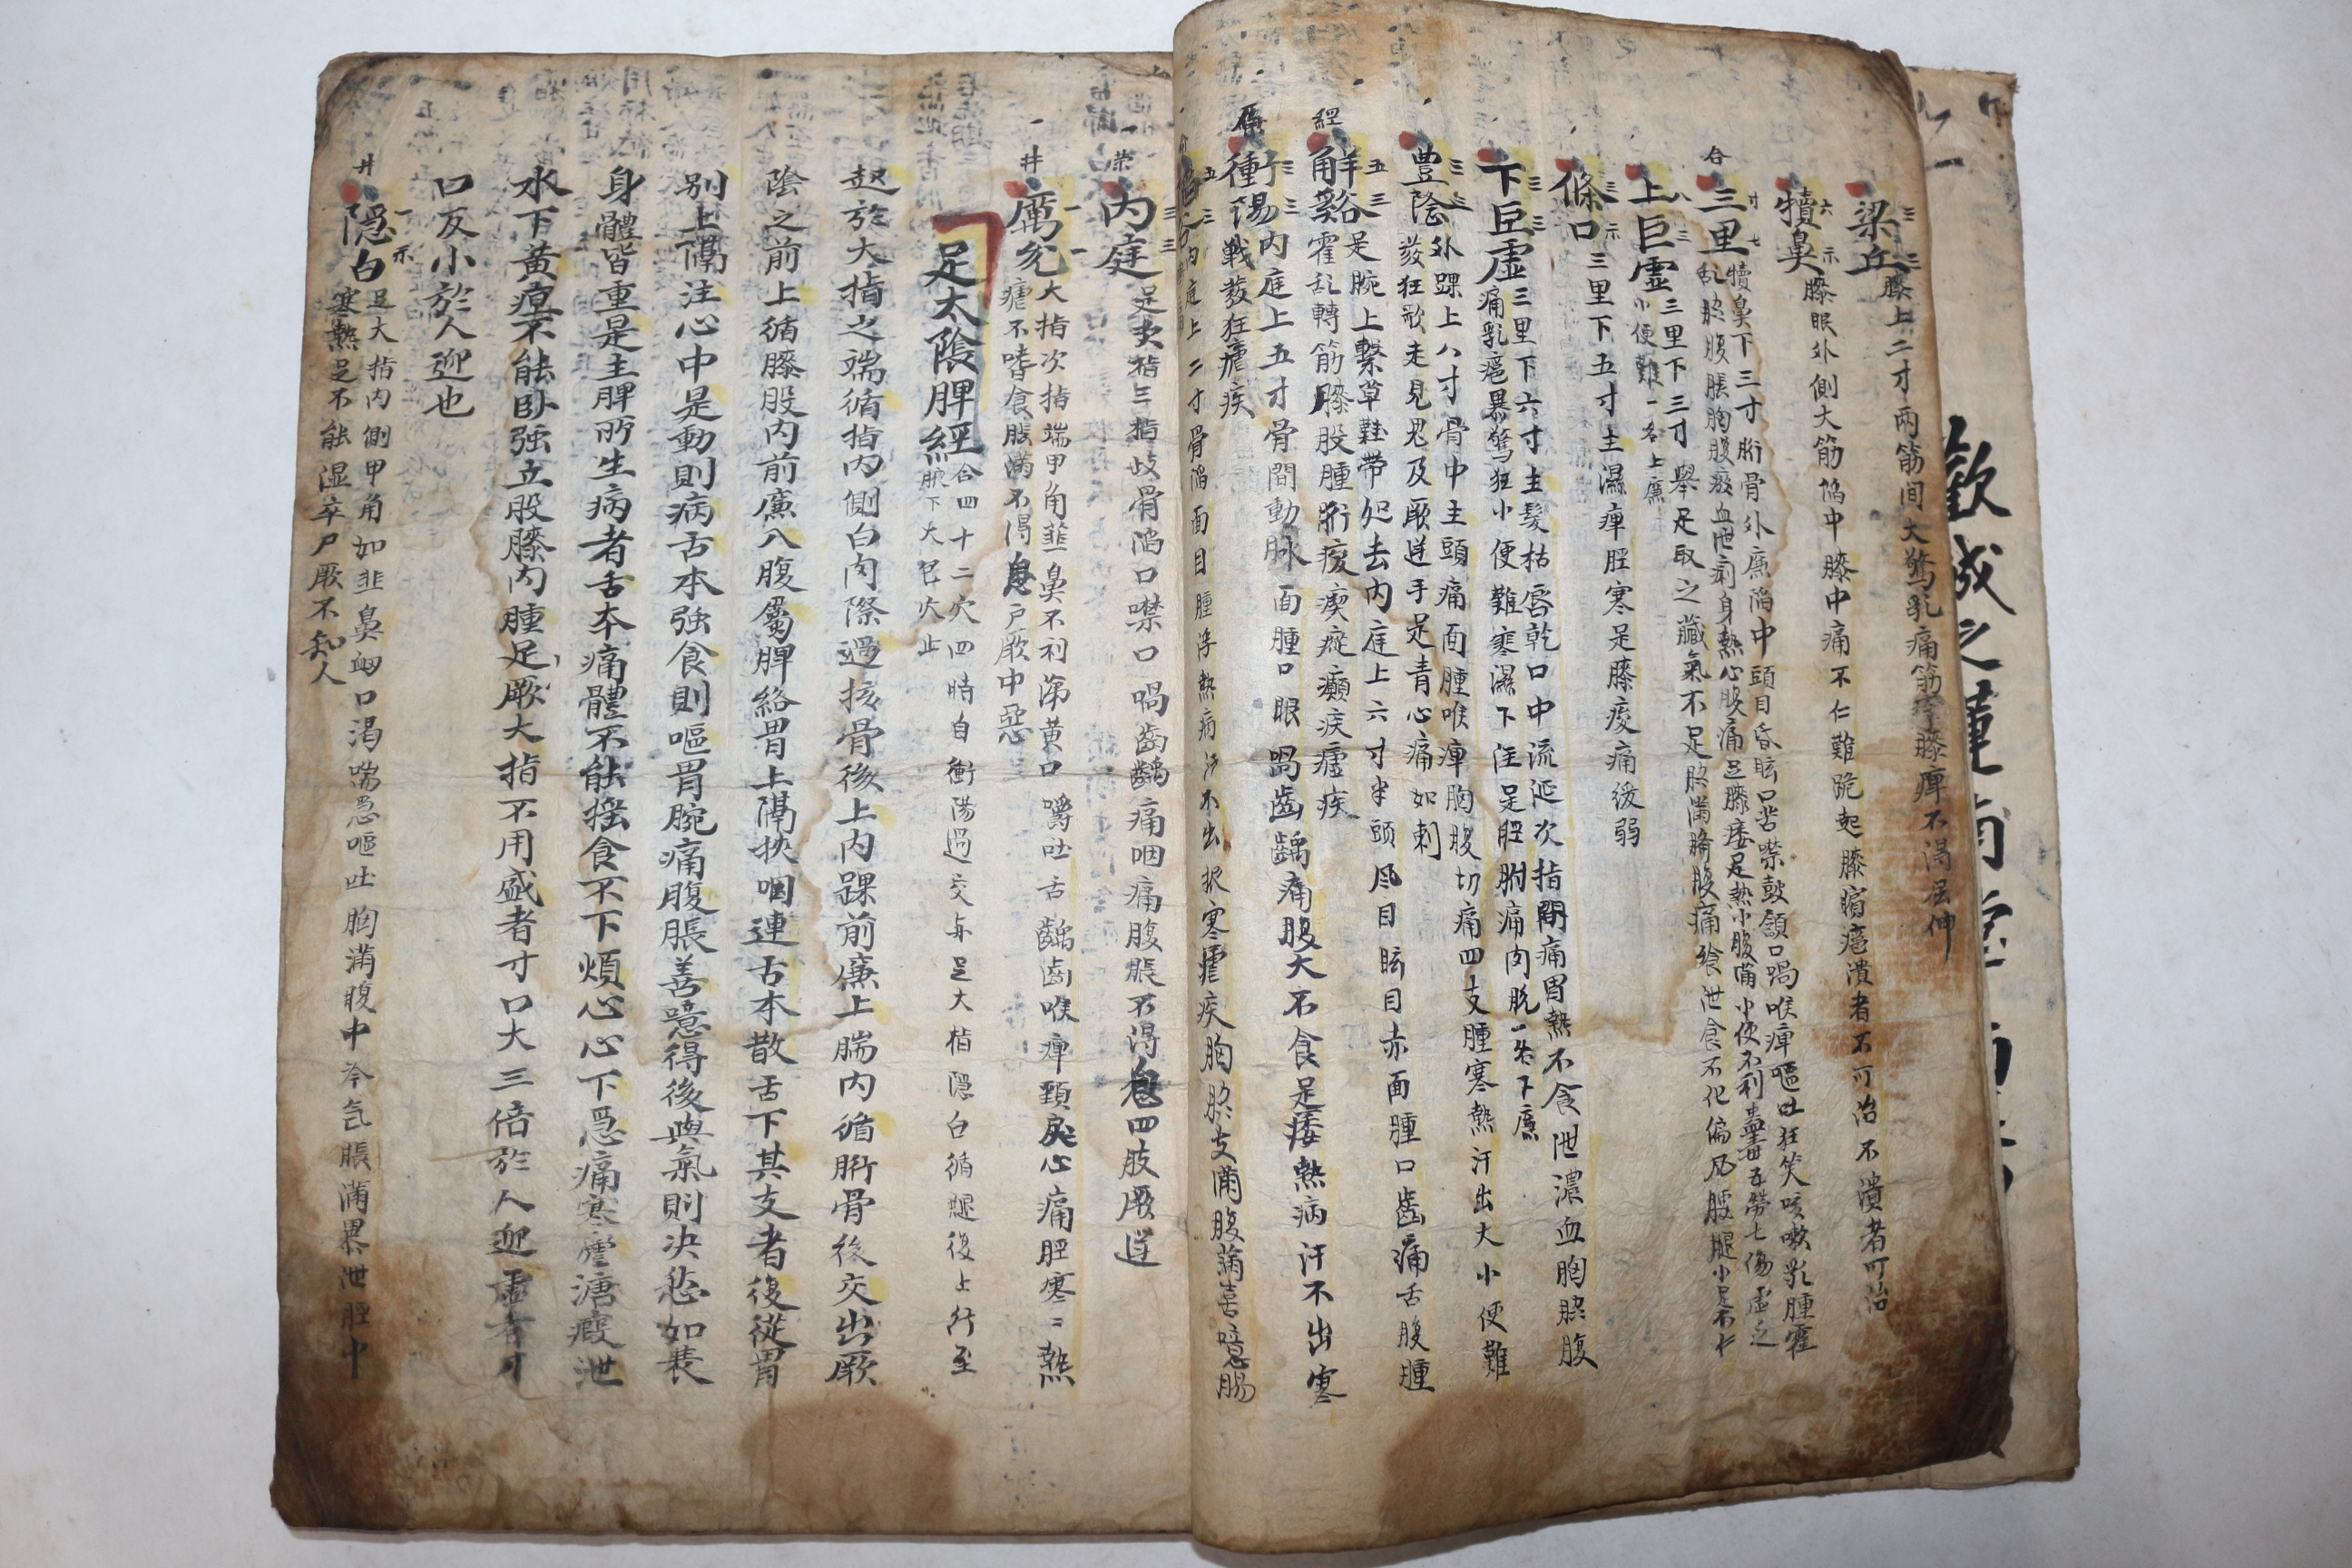 梁丘 三 三 膝上二寸兩筋间大驚乳痛筋挛膝痺不得屈伸
犢鼻 六 示 膝眼外側大筋陷中膝中痛不仁難跪起膝臏瘡潰者不可治不潰者可治
合
三里 寸 七 犢鼻下三寸胻骨外廉陷中頭目昏眩口苦噤鼓頷口喎喉痺嘔吐狂笑咳嗽乳腫霍
乱 腹脹胸腹瘀血泄痢身熱心腹痛足膝痿足熱小腹滿小便不利蠱毒五劳七傷虛之
上巨霊 八 三 三里下三寸 舉足取之臟氣不足 滿臍腹痛 泄食不化偏风腰腿小足不仁
小便難一名上廉
條口 三 示 三里下五寸主濕痺脛寒足膝痠痛緩弱
下巨虛 三 三 三里下六寸主髮枯唇乾口中流涎次指間痛胃熱不食泄濃血胸 腹
痛乳瘡暴驚狂小便難寒濕下注足脛胕痛肉脱一名下廉
豊陰 三 三 外踝上八寸骨中主頭痛面腫喉痺胸腹切痛四支腫寒熱汗出大小便難
發狂歌走見鬼及厥逆手足青心痛如刺
經
解谿 五 三 是腕上繫草鞋带处去内庭上六寸半頭风目眩目赤面腫口齒痛舌腹腫
霍乱轉筋膝股腫胻痠瘈瘲癲疾瘧疾
原
衝陽 三 三 内庭上五寸骨間動脉面腫口眼喎齒齲痛腹大不食足痿熱病汗不出寒
戰發狂瘧疾
谷 五 三 内庭上二寸骨陷面目腫浮熱病汗不出振寒瘧疾胸 支滿腹滿喜噫腸
荣
内庭 三 三 足大指三指歧骨陷口噤口喎齒齲痛咽痛腹脹不得息四肢厥逆
井
厲兌 一 一 大指次指端甲角韮鼻不利涕黄口嚼吐舌齲齒喉痺頸戾心痛脛寒〻熱
瘧不嗜食脹滿不得息尸厥中惡
足太陰脾經 合四十二穴四時自衝陽過交与足大指隱白循腿後上行至
腋下大包穴止
起於大指之端循指内側白肉際過核骨後上内踝前廉上腨内循胻骨後交出厥
陰之前上循膝股内前廉入腹屬脾絡胃上膈挾咽連舌本散舌下其支者復従胃
别上膈注心中是動則病舌本強食則嘔胃腕痛腹脹善噫得後與氣則决愁如衰
身體皆重是主脾所生病者舌本痛體不能摇食不下煩心心下急痛寒瘧溏瘕泄
水下黄疸不能卧强立股膝内腫足厥大指不用盛者寸口大三倍於人迎虚者寸
口反小於人迎也
井
隱白 一 示 足大指内側甲角如韭鼻衂口渴喘急嘔吐胸滿腹中冷气脹滿暴泄脛中
寒熱足不能湿卒尸厥不知人